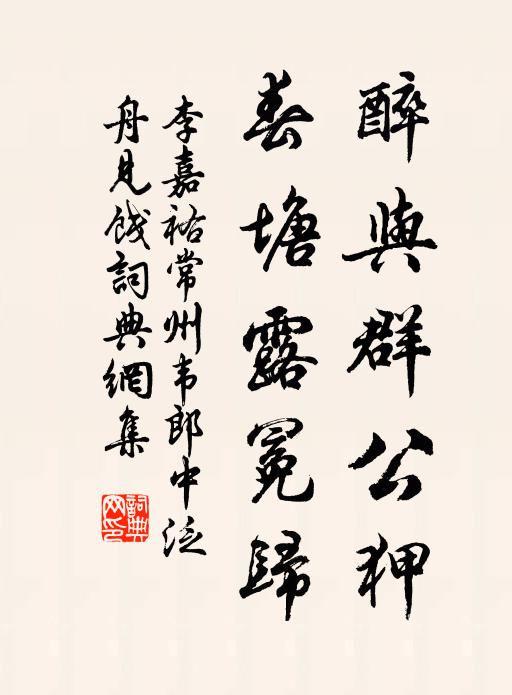 醉與群公狎
春塘露冕歸
李嘉祐常州韦郎中泛
舟見餞詞典網集
詞典網印